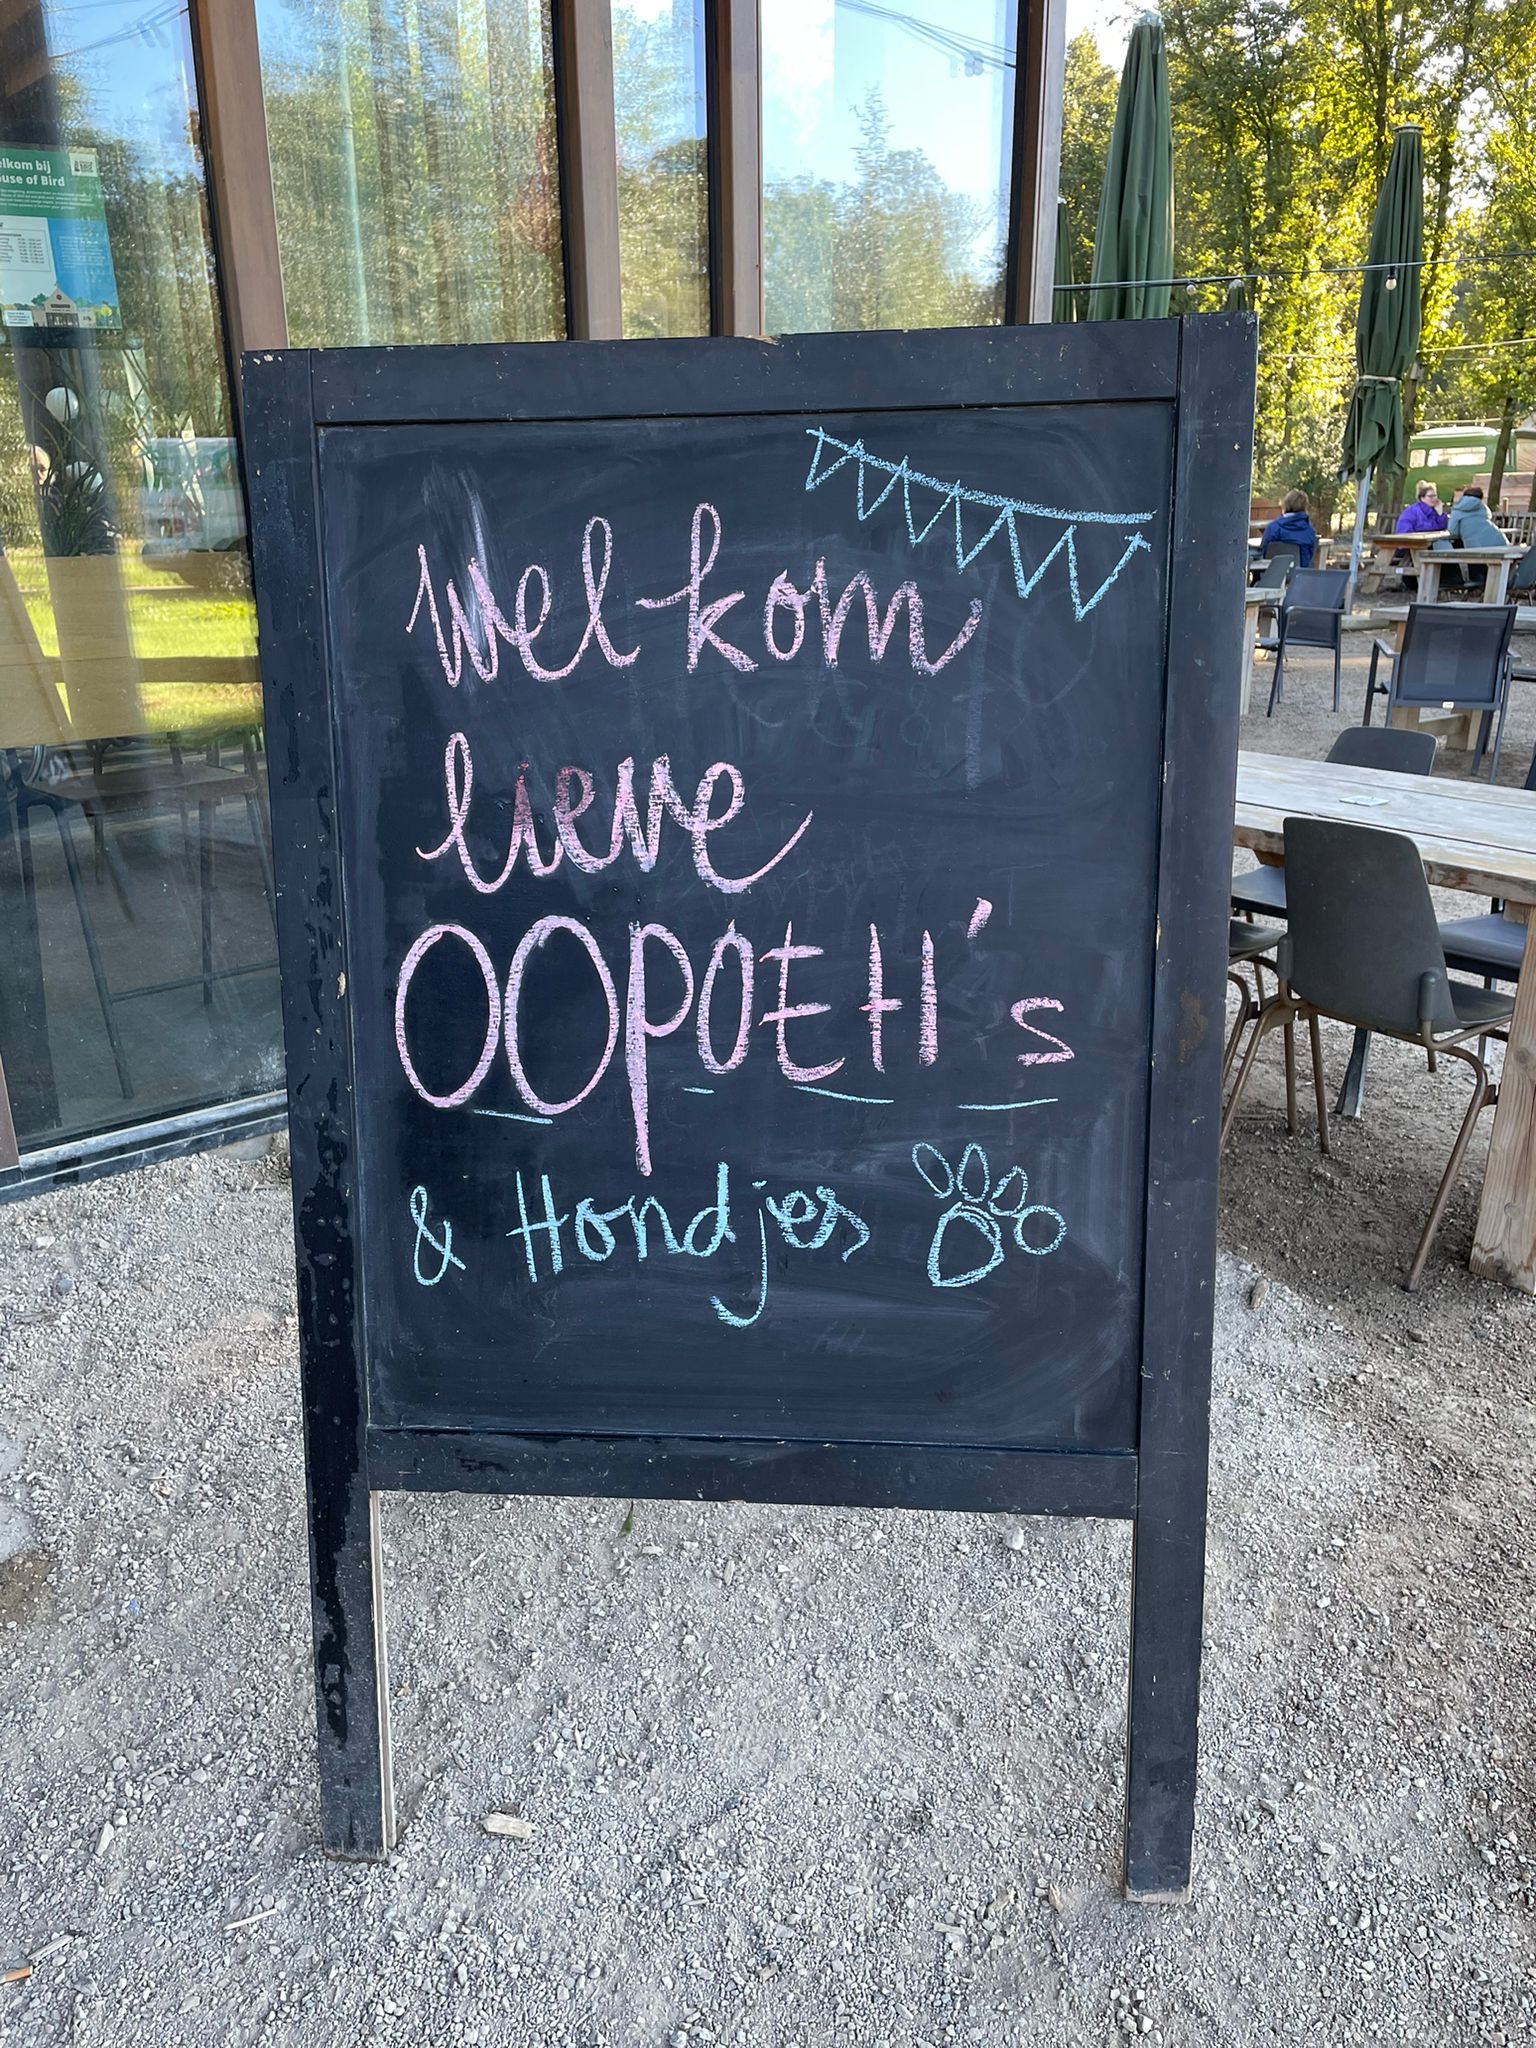 elkom bij
ouse of Bird
Welkom
lieve
OOPOEH's
& Hondjes